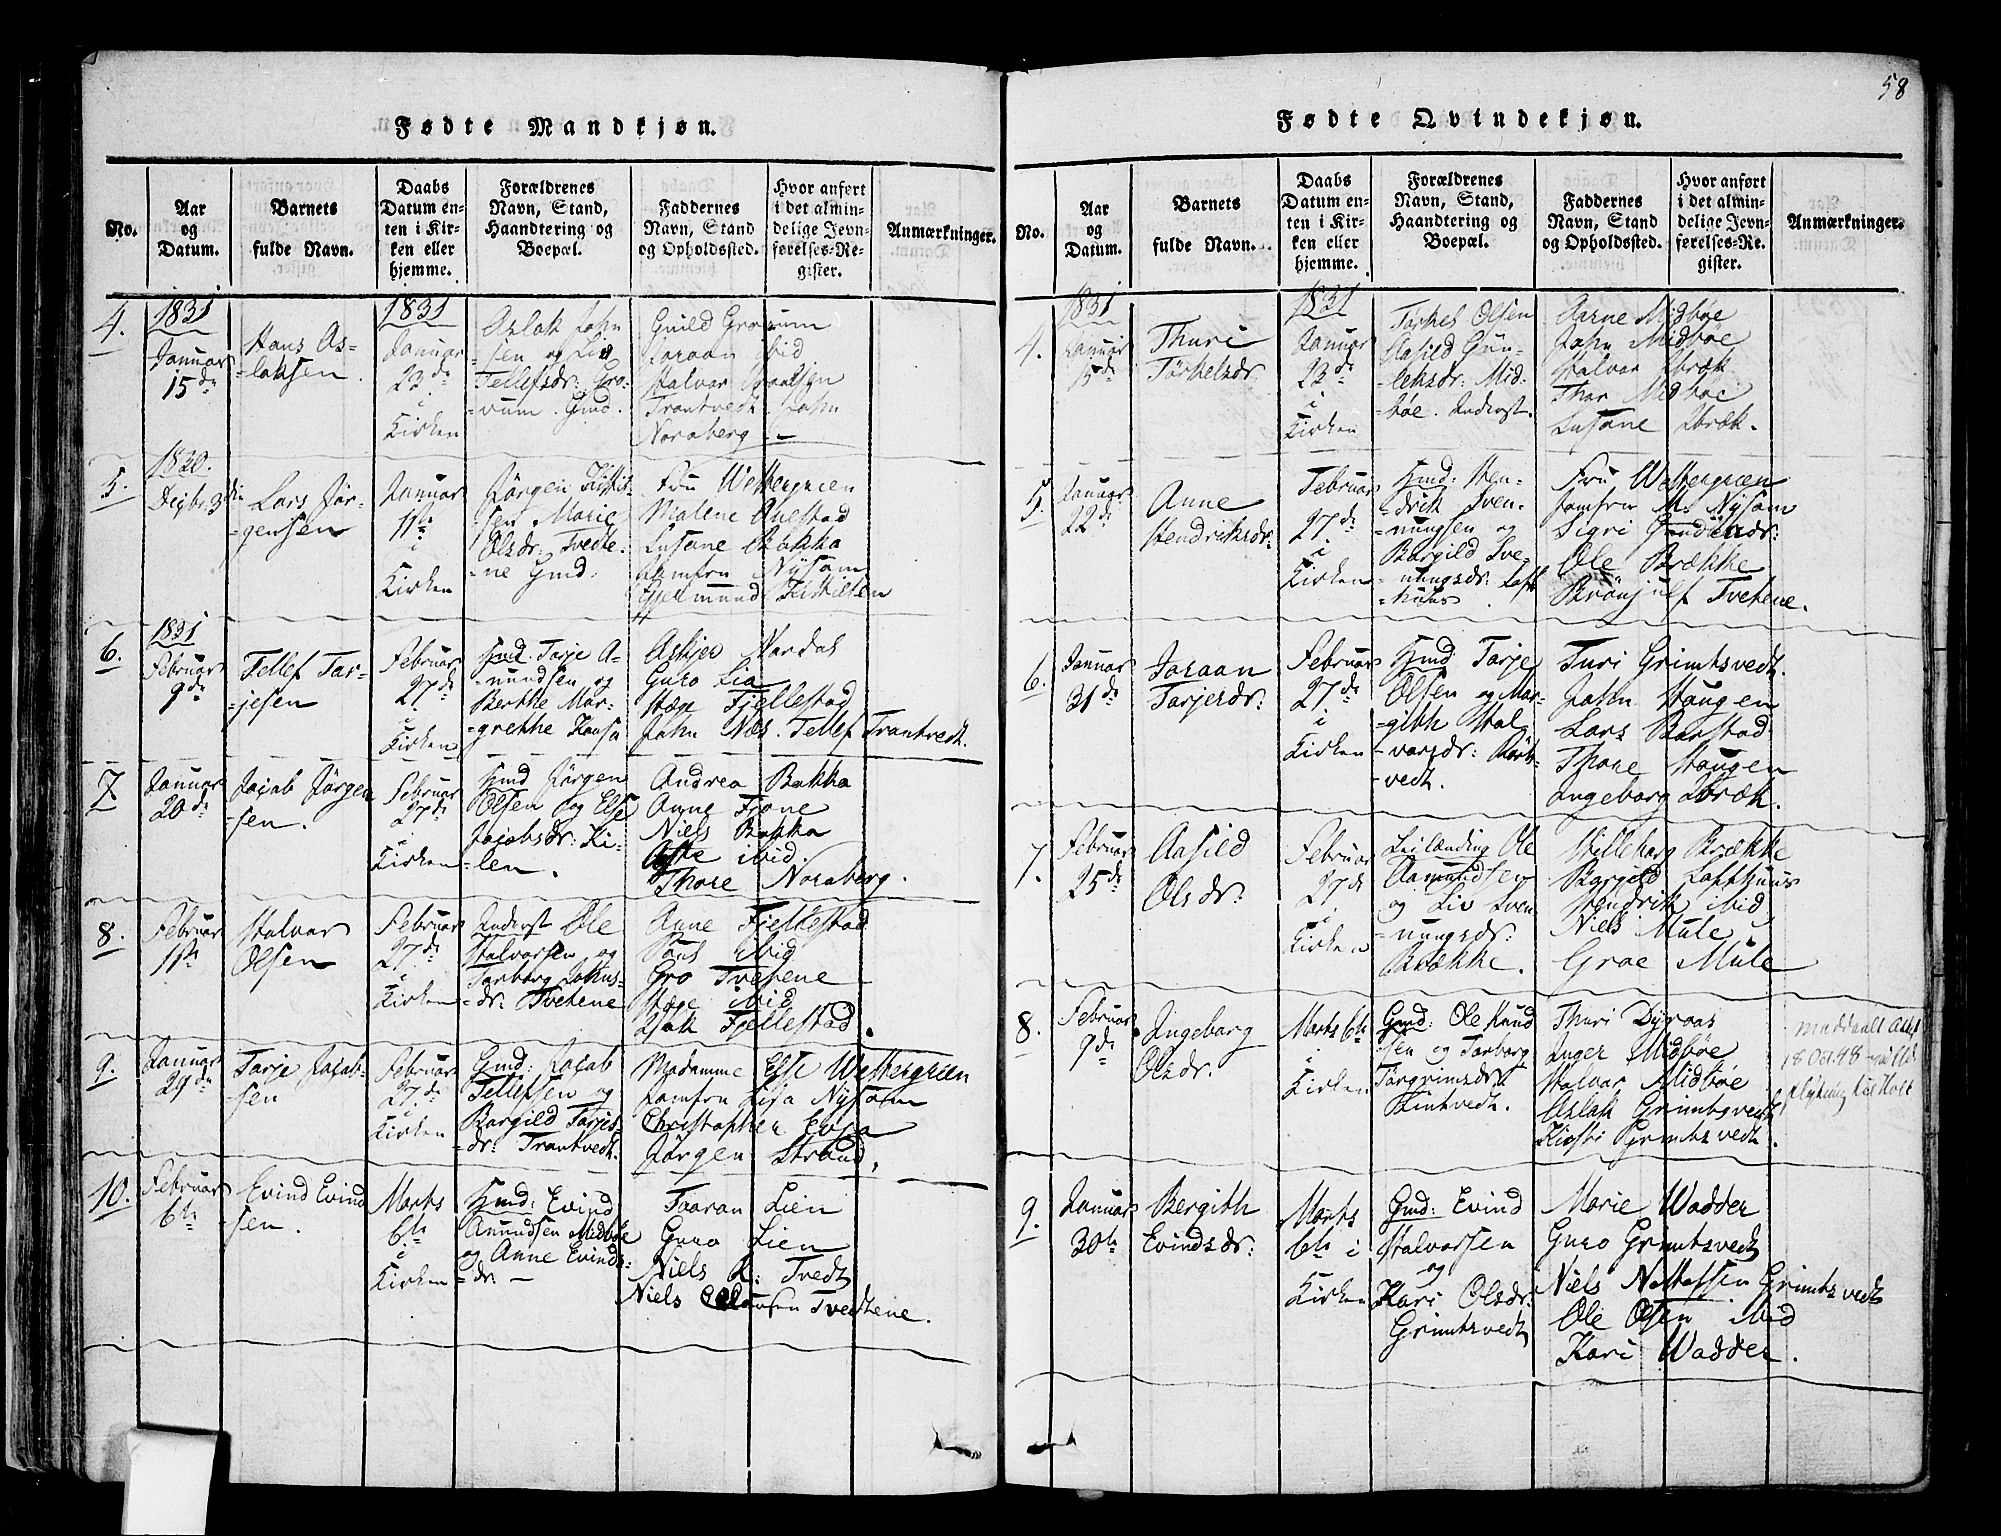 58
Fødte Mandkjøn.
No.
Aar
og
Datum.
Barnets
fulde Navn.
Daabs
Datum en-
ten i Kir-
ken eller
hjemme.
Forældrenes
Navn, Stand,
Haandtering og
Boepæl.
Faddernes
Navn, Stand
og Opholdssted.
Hvor anført
i det almin-
delige Jevn-
førelses-Re-
gister.
Anmærkninger.
4.
1831
Januar
15de
Hans As-
-laksen.
1831
Januar
23de
i
Kirken
Aslak John
-sen og Liv
Tellefsdr: Gro-
-vum. Gmd.
Guild Grovum
Joraan ibid
Halvor
Trantvedt John
Noraberg
5.
1830.
Lars Jör-
-gensen
Januar
11te
i
Kirken
Jörgen
-sen Marie
Olsdr: Tvedte-
-ne Gmd:
Fru Wettergreen
Malene Qvestad
Susane Bakka
Jomfru Nysom
Gjermund
6.
1831
Februar
9de
Tellef Tar-
-jesen
Februar
27de
i
Kirken
Gmd: Tarje A-
-mundsen og
Berthe Mar-
-grethe
Askjer Nordal
Guro Lia
Hæge Fjellestad
John Næs. Tellef Trantvedt.
7.
Januar
20de
Jacob Jörgen
-sen.
Februar
27de
i
Kirken
Gmd Jörgen
Olsen og Else
Jacobsdr: Ki-
-len.
Andrea Bakka
Anne Fione
Niels Bakka
ibid.
Thore Noraberg.
8.
Februar
11te
Halvor
Olsen
Februar
27de
i
Kirken
Inderst Ole
Halvorsen og
Torborg Johns-
-dr: Tvetene
Anne Fjellestad
ibid
Gro Tvetene
Hæge ibid
Isak Fjellestad.
9.
Januar
Tarje Jacob-
-sen
Februar
27de
i
Kirken
Gmd: Jacob
Tellefsen og
Borgild Tarjes-
-dr: Trantvedt.
Madamme Else Wettergreen
Jomfru Lisa Nysom
Christopher Evja
Jörgen Strand.
10.
Februar
6te
Evind Evind
-sen.
Marts
6te
i
Kirken
Gmd: Evind
Amundsen Midböe
og Anne Evinds-
-dr:
Taaran Lien
Guro Lien
Niels R: Tvedt
Niels Tvedtene.
Fødte Qvindekjøn.
No.
Aar
og
Datum.
Barnets
fulde Navn.
Daabs
Datum en-
ten i Kir-
ken eller
hjemme.
Forældrenes
Navn, Stand,
Haandtering og
Boepæl.
Faddernes
Navn, Stand
og Opholdssted.
Hvor anført
i det almin-
delige Jevn-
førelses-Re-
gister.
Anmærkninger.
4.
1831
Januar
15de
Thuri
Törkelsdr
1831
Januar
23de
i
Kirken
Torkel Olsen
Aasild Gun-
-leksdr: Mid-
-böe. Inderst.
Aarne Midböe
John Midböe
Halvor Ibræk
Thor Midböe
Susane Ibræk.
5.
Januar
22de
Anne
Hendriksdr:
Februar
27de
i
Kirken
Gmd: Hen-
-drik Sven-
-nungsen og
Borgild Sve-
-nungsdr: Loft
-huus.
Fru Wettergreen
Jomfru M. Nysom
Sigri
Ole Brække
Brönjulf Tvetene.
6.
Januar
31de
Joraan
Tarjesdr:
Februar
27de
i
Kirken
Gmd Tarje
Olsen og Mar-
-gith Hal-
-vorsdr:
-vedt.
Turi Grimtsvedt.
John Haugen
Lars Borstad
Thore Haugen
Ingeborg Ibræk.
7.
Februar
25de
Aasild
Olsdr:
Februar
27de
i
Kirken
Leilænding Ole
Aamundsen
og Liv Sven-
-nungsdr:
Brække.
Hilleborg Brække
Borgild Lofthuus
Hendrik ibid
Niels Mule
Groe Mule
8.
Februar
9de
Ingeborg
Olsdr.
Marts 6te
i
Kirken
Gmd: Ole Knud
-sen og Torborg
Torgrimsdr:
Thuri Dyraas
Inger Midböe
Halvor Midböe
Aslak Grimtsvedt
Kirsti Grimtsvedt.
9.
Januar
30te
Bergith
Evindsdr:
Marts
6te i
Kirken
Gmd: Evind
Halvorsen
og
Kari Olsdr:
Grimtsvedt
Marie Wadder
Guro Grimtsvedt
Niels Grimtsvedt
Ole Olsen ibid
Kari Wadder.